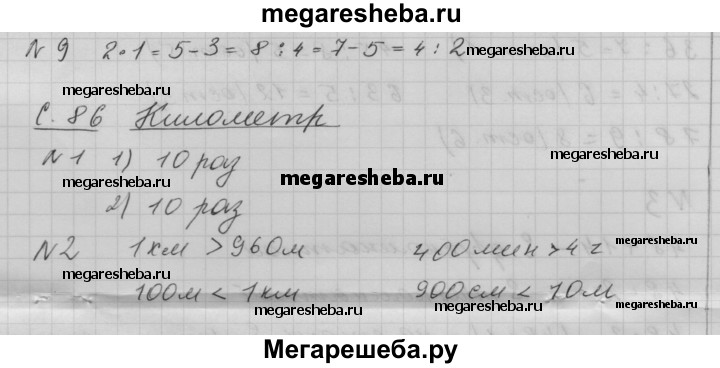 megaresheba.ru
N 9 2•1=5-3=8:4=7-5=4:2 megaresheba.ru
megaresheba.ru
С. 86 Километр
megaresheba.ru
N1 1) 10 раз
megaresheba.ru
megaresheba.ru
2) 10 раз
N2 1км > 960м 400мин > 4 ч
megaresheba.ru
megaresheba.ru
100м < 1км 900см < 10м
megaresheba.ru
megaresheba.ru
Мегарешеба.ру